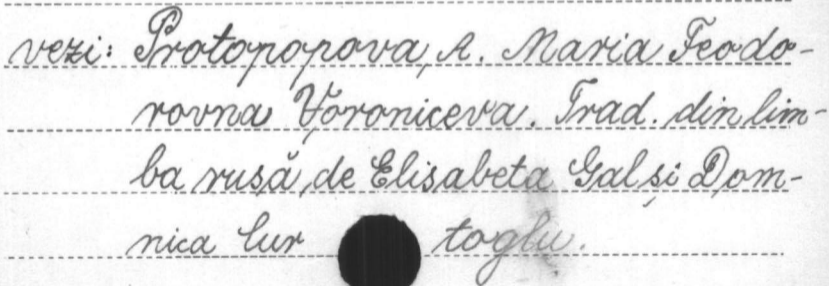 vezi: Protopopova, A. Maria Feodo-
rovna Voroniceva. Trad. din lim-
ba rusă, de Elisabeta Gal și Dom-
nica Cur toglu.